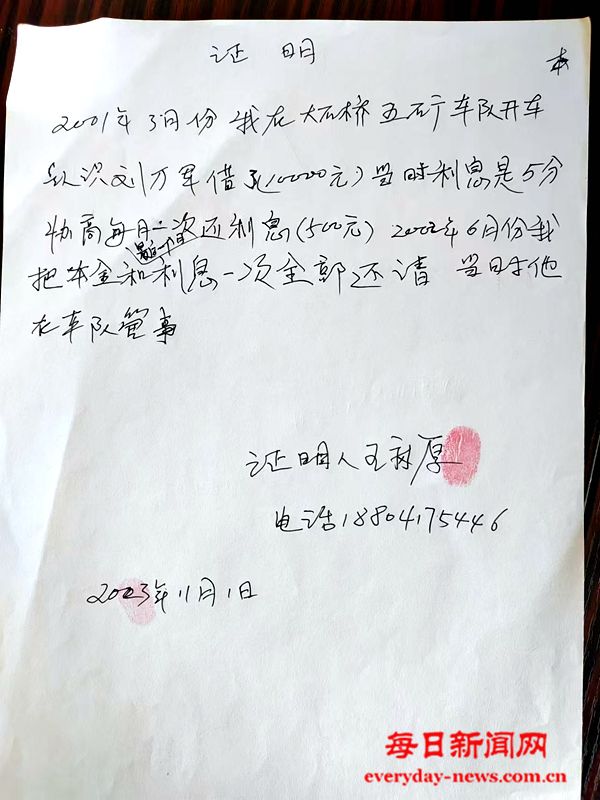 证 明
本
2001年3月份 我在大石桥五矿车队开车
认识刘万军借了(10000元)当时利息是5分
协商每月一次还利息(500元) 2002年6月份我
最后一个月
把本金和利息一次全部还请 当时他
在车队管事
证明人王 厚
电话18804175446
2023年11月1日
每日新闻网
everyday-news.com.cn